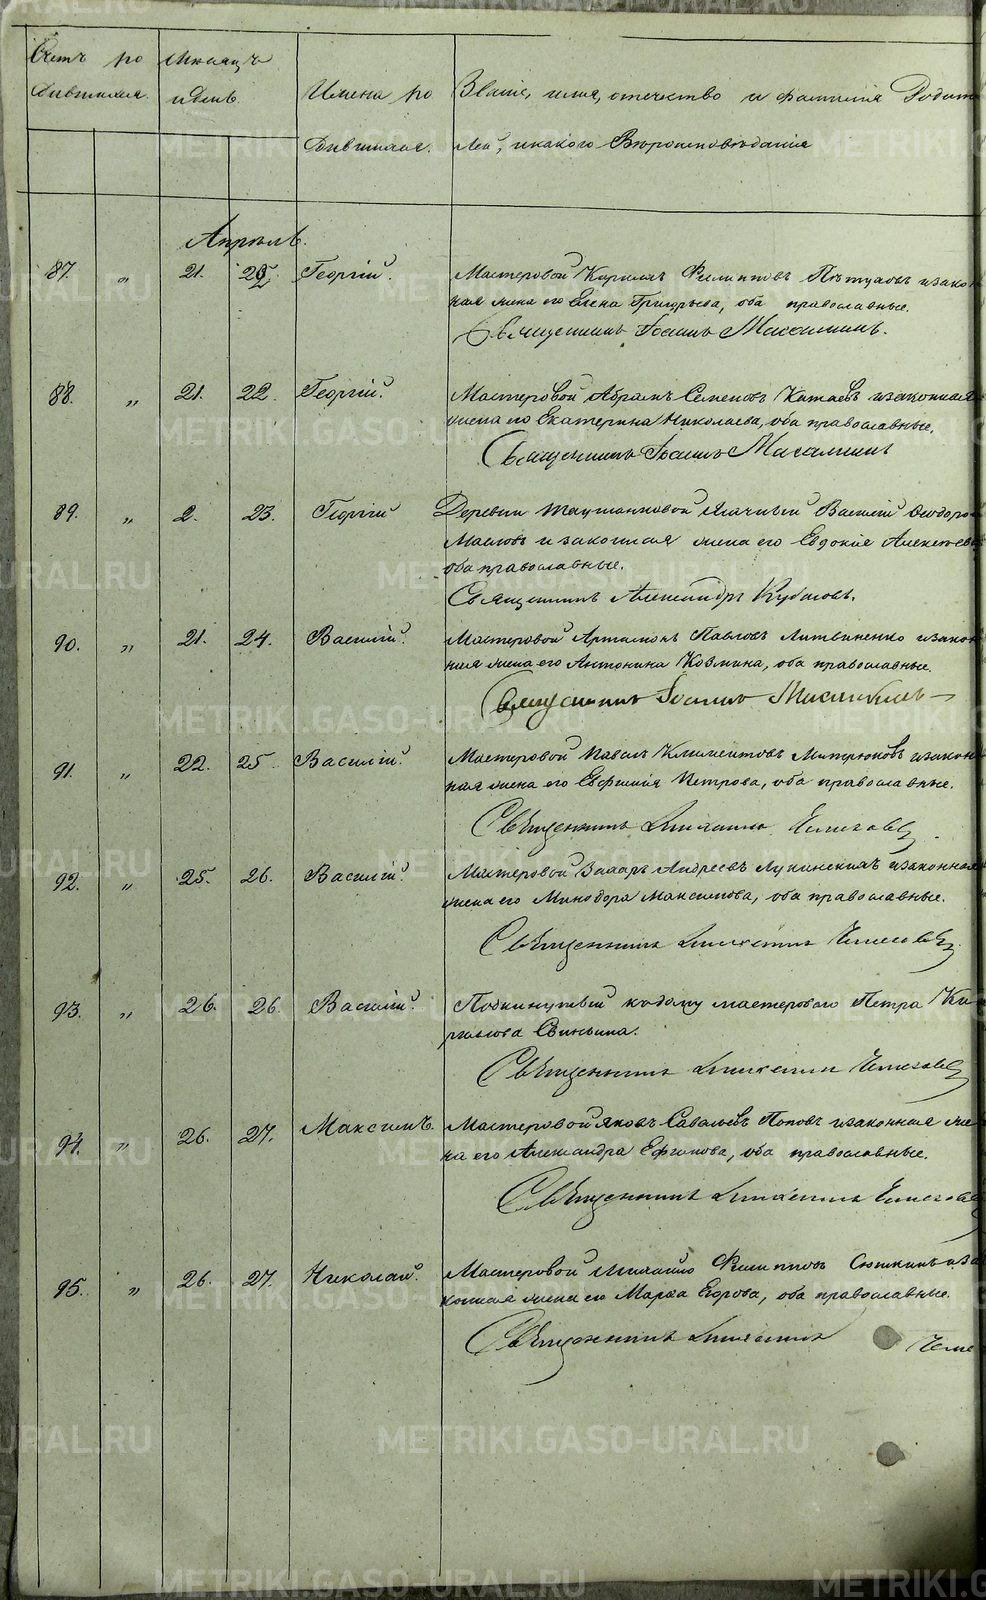 Счетъ ро Мѣсяцъ
дившихся. и День.
Имена ро
дившихся.
Званіе, имя, отечество и фамилія Родите
лей, и какого Вѣроисповѣданія
Апрѣль.
87. " 21. 22. Георгій. Мастеровой Кириллъ Филипповъ Пѣтуховъ и закон
ная жена его Елена Григорьева, оба православные.
Священникъ Іоаннъ
88. " 21. 22. Георгій. Мастеровой Абрамъ Семеновъ Катаевъ и законная
жена его Екатерина Николаева, оба православные.
Священникъ Іоаннъ
89. " 2. 23. Георгій Деревни Василій Ѳеодоро
Масловъ и законная жена его Евдокія Алексѣева
оба православные.
Священникъ Александръ
90. " 21. 24. Василій. Мастеровой Артамонъ Павловъ Литвиненко и закон
ная жена его Антонина Козмина, оба православные.
Священникъ Іоаннъ
91. " 22. 25. Василій. Мастеровой Павелъ Климентовъ Митрюковъ и закон
ная жена его Евфимія Петрова, оба православные.
Священникъ
92. " 25. 26. Василій. Мастеровой Захаръ Андреевъ Лукинскихъ и законная
жена его Минодора Максимова, оба православные.
Священникъ
93. " 26. 26. Василій. Подкинутый къ дому мастероваго Петра Ки
рилова Свиньина.
Священникъ
94. " 26. 27. Максимъ. Мастеровой Яковъ Савельевъ Поповъ и законная же
на его Александра Ефимова, оба православные.
Священникъ
95. " 26. 27. Николай. Мастеровой Михаило Филипповъ Сюткинъ и за
конная жена его Марѳа Егорова, оба православные.
Священникъ
METRIKI.GASO-URAL.RU